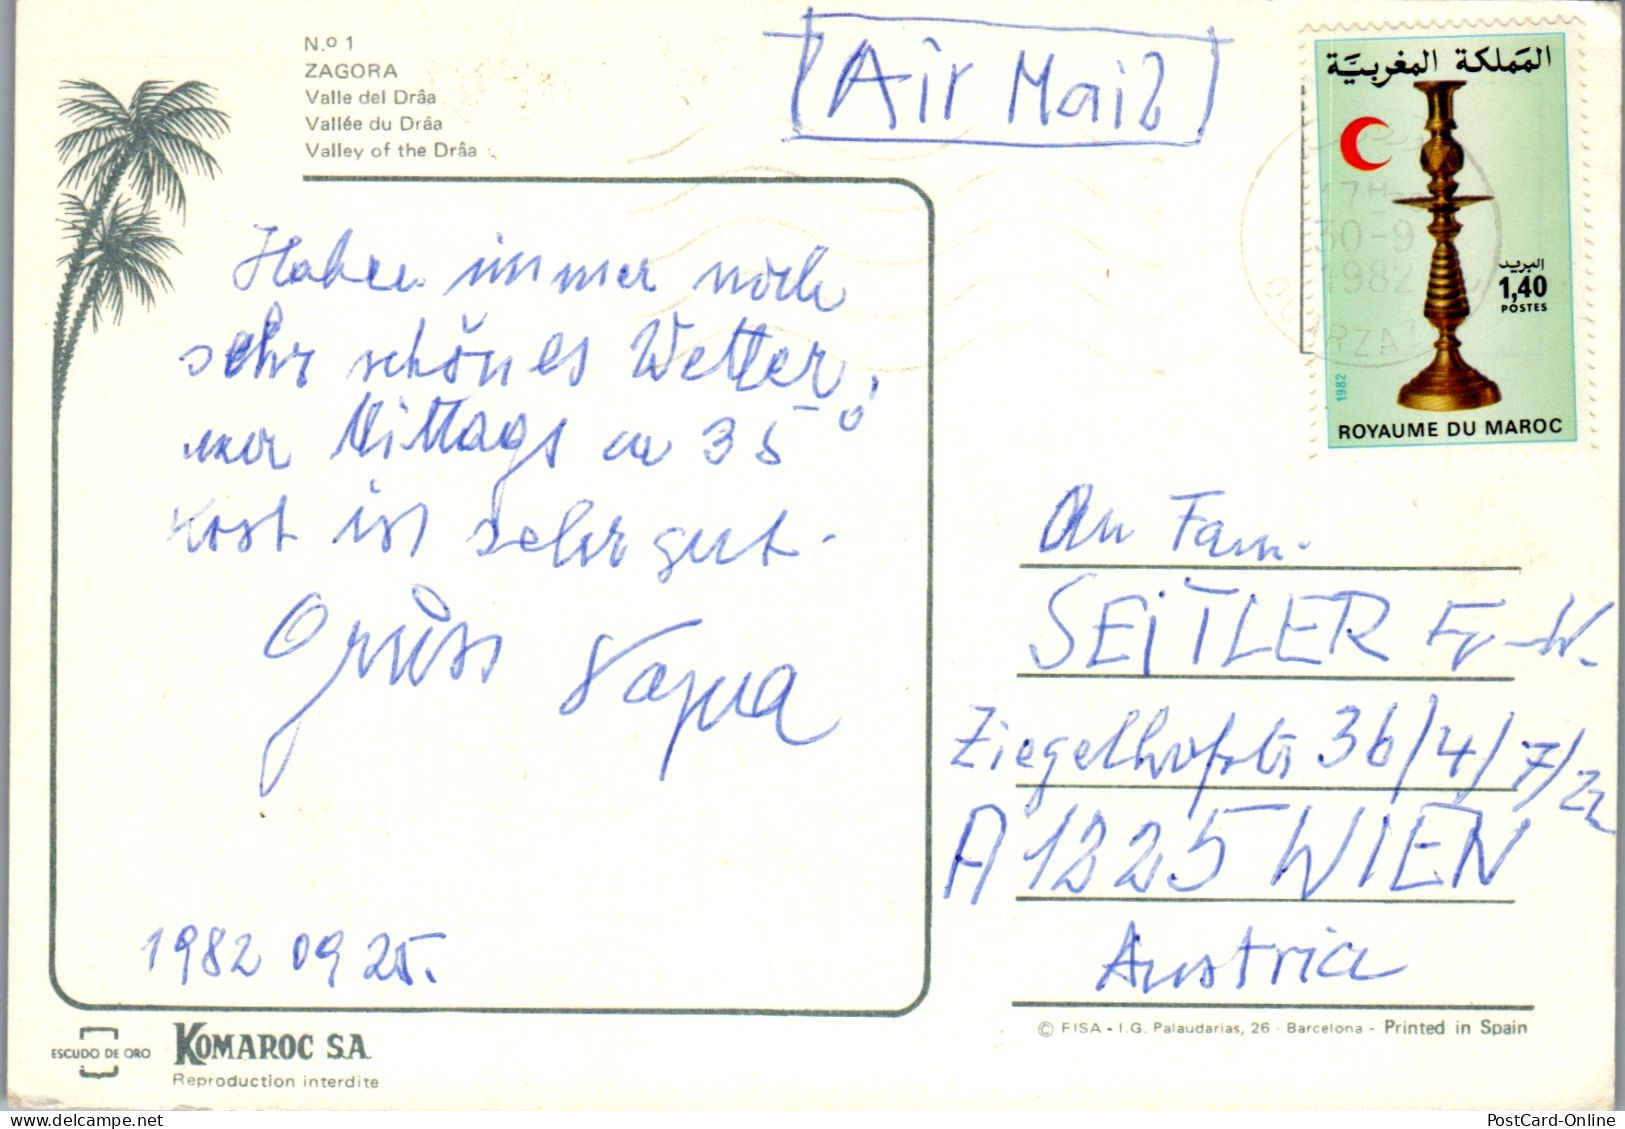 N.º 1
ZAGORA
Valle del Drâa
Vallée du Drâa
Valley of the Drâa
Air Mail
المملكة المغربية
17H
30-9
1982
OUARZA
البريد
1,40
POSTES
1982
ROYAUME DU MAROC
Haben immer noch
sehr schönes Wetter,
nur Mittags ca 35°
Kost ist sehr gut.
Grüss Papa
1982 09 25.
An Fam.
SEITLER
Ziegelhofstr 36/4/7/22
A 1225 WIEN
Austria
ESCUDO DE ORO
KOMAROC S.A.
Reproduction interdite
© FISA - I.G. Palaudarias, 26 - Barcelona - Printed in Spain
PostCard-Online